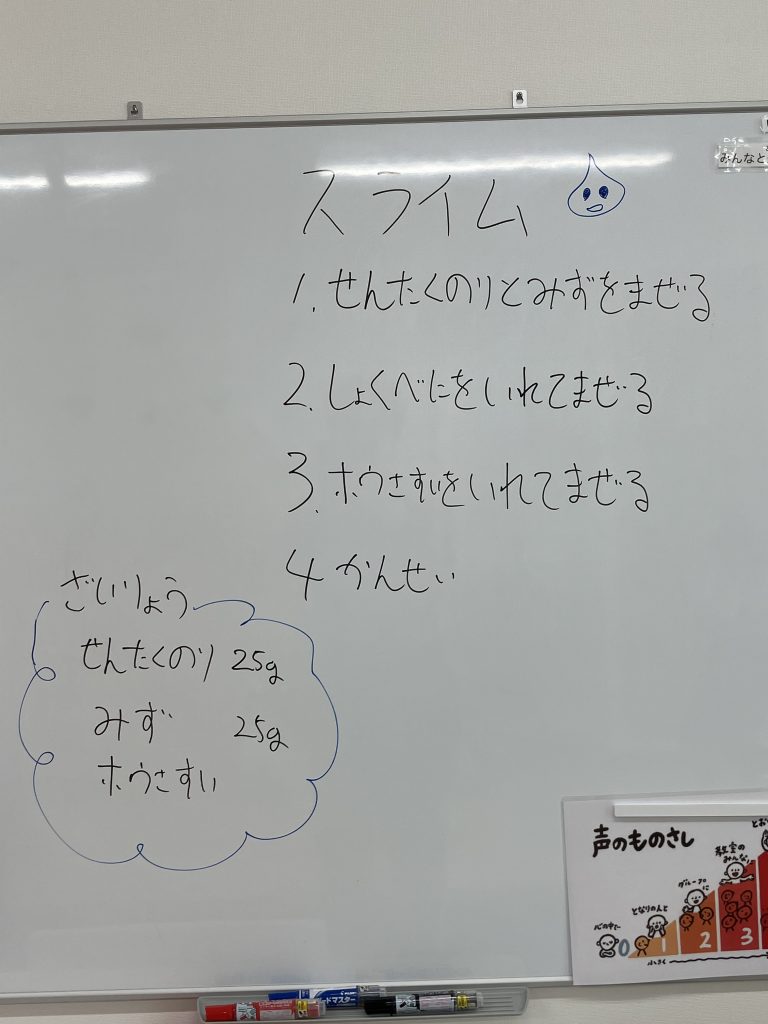 スライム
1. せんたくのりとみずをまぜる
2. しょくべにをいれてまぜる
3. ホウさすいをいれてまぜる
4 かんせい
ざいりょう
せんたくのり 25g
みず 25g
ホウさすい
みんなと
声のものさし
心の中で
となりの人と
グループに
教室のみんなに
0 1 2 3
小さく
ドマスター